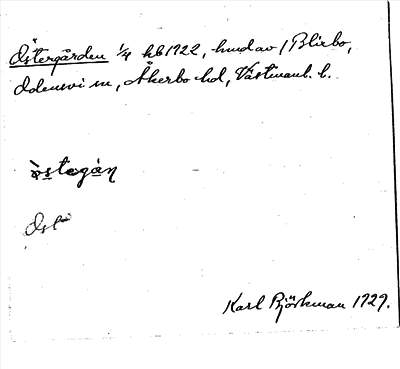 Östergården 1/4 kb 1722, hmd av i Blixbo,
Odensvi sn, Åkerbo hd, Västmanl. l.
östəgàn̥
Öst
Karl Björkman 1929.